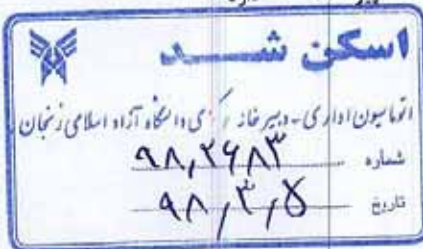 اسکن شد
اتوماسیون اداری - دبیرخانه مرکزی دانشگاه آزاد اسلامی زنجان
شماره ۹۸,۲۶۸۳
تاریخ ۹۸,۳,۵